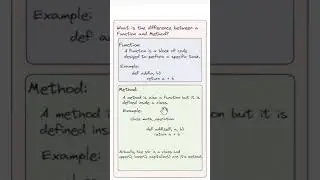 What is the difference between a
Function and Method?
Function:
A function is a block of code
designed to perform a specific task.
Example:
def add(a, b)
return a + b
Method:
A method is also a function but it is
defined inside a class.
Example:
class math_operation
def add(self, a, b)
return a + b
Example:
def a
Method:
A method
defined ins
Example:
on but it is